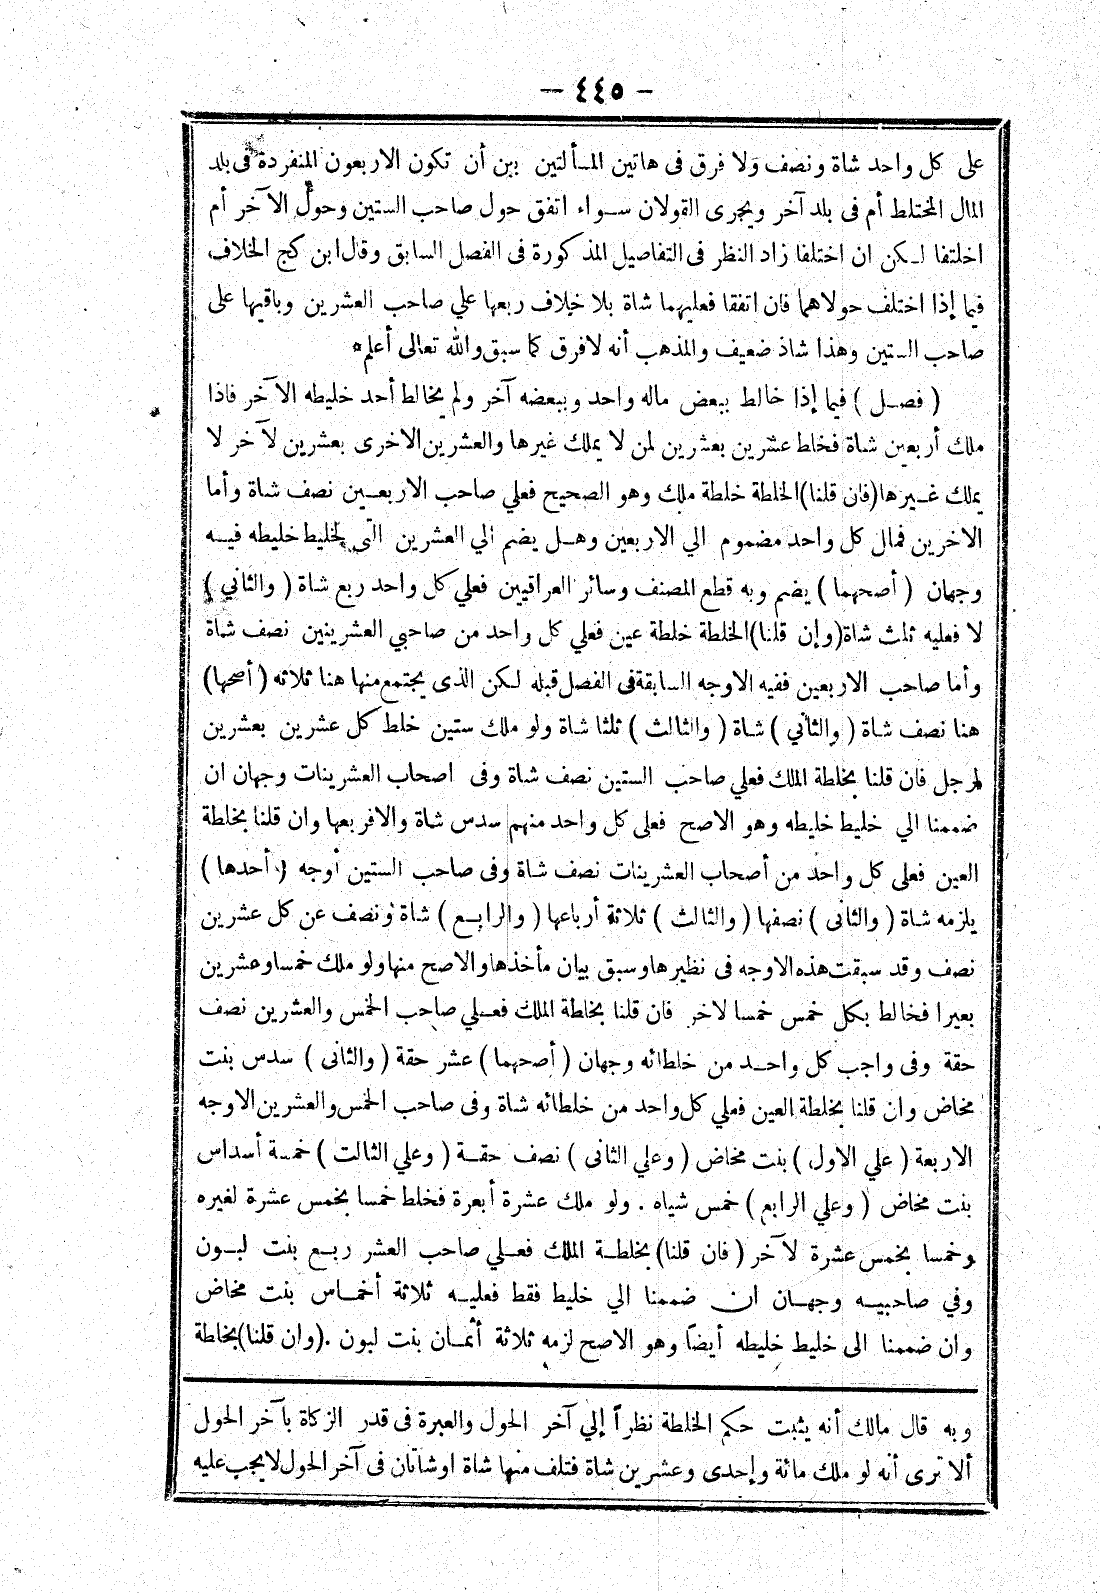 — ٤٤٥ —
على كل واحد شاة ونصف ولا فرق فى هاتين المسألتين بين أن تكون الاربعون المنفردة فى بلد
المال المختلط أم فى بلد آخر ويجرى القولان سواء اتفق حول صاحب الستين وحول الآخر أم
اختلفا لكن ان اختلفا زاد النظر فى التفاصيل المذكورة فى الفصل السابق وقال ابن كج الخلاف
فيما إذا اختلف حولاهما فان اتفقا فعليهما شاة بلا خلاف ربعها علي صاحب العشرين وباقيها على
صاحب الستين وهذا شاذ ضعيف والمذهب أنه لافرق كما سبق والله تعالى أعلم*
( فصل ) فيما إذا خالط ببعض ماله واحد وببعضه آخر ولم يخالط أحد خليطه الآخر فاذا
ملك أربعين شاة فخلط عشرين بعشرين لمن لا يملك غيرها والعشرين الاخرى بعشرين لآخر لا
يملك غيرها(فان قلنا)الخلطة خلطة ملك وهو الصحيح فعلي صاحب الاربعين نصف شاة وأما
الاخرين فمال كل واحد مضموم الي الاربعين وهل يضم الي العشرين التى لخليط خليطه فيه
وجهان ( أصحهما ) يضم وبه قطع المصنف وسائر العراقيين فعلي كل واحد ربع شاة ( والثاني )
لا فعليه ثلث شاة(وإن قلنا)الخلطة خلطة عين فعلي كل واحد من صاحبي العشرينين نصف شاة
وأما صاحب الاربعين ففيه الاوجه السابقة فى الفصل قبله لكن الذى يجتمع منها هنا ثلاثه ( أصحها)
هنا نصف شاة ( والثاني ) شاة ( والثالث ) ثلثا شاة ولو ملك ستين خلط كل عشرين بعشرين
لرجل فان قلنا بخلطة الملك فعلي صاحب الستين نصف شاة وفى اصحاب العشرينات وجهان ان
ضممنا الي خليط خليطه وهو الاصح فعلى كل واحد منهم سدس شاة والافربعها وان قلنا بخلطة
العين فعلى كل واحد من أصحاب العشرينات نصف شاة وفى صاحب الستين أوجه ( أحدها )
يلزمه شاة ( والثانى ) نصفها ( والثالث ) ثلاثة أرباعها ( والرابع ) شاة ونصف عن كل عشرين
نصف وقد سبقت هذه الاوجه فى نظيرها وسبق بيان مأخذها والاصح منها ولو ملك خمسا وعشرين
بعيرا فخالط بكل خمس خمسا لاخر فان قلنا بخلطة الملك فعلي صاحب الخمس والعشرين نصف
حقة وفى واجب كل واحد من خلطائه وجهان ( أصحهما ) عشر حقة ( والثانى ) سدس بنت
مخاض وان قلنا بخلطة العين فعلي كل واحد من خلطائه شاة وفى صاحب الخمس والعشرين الاوجه
الاربعة ( علي الاول ) بنت مخاض ( وعلي الثانى ) نصف حقة ( وعلي الثالت ) خمسة أسداس
بنت مخاض ( وعلي الرابع ) خمس شياه . ولو ملك عشرة أبعرة فخلط خمسا بخمس عشرة لغيره
وخمسا بخمس عشرة لآخر ( فان قلنا) بخلطة الملك فعلي صاحب العشر ربع بنت لبون
وفي صاحبيه وجهان ان ضممنا الي خليط فقط فعليه ثلاثة أخماس بنت مخاض
وان ضممنا الى خليط خليطه أيضاً وهو الاصح لزمه ثلاثة أثمان بنت لبون .(وان قلنا)بخلطة
وبه قال مالك أنه يثبت حكم الخلطة نظراً إلي آخر الحول والعبرة فى قدر الزكاة بآخر الحول
ألا ترى أنه لو ملك مائة وإحدى وعشرين شاة فتلف منها شاة اوشاتان فى آخر الحول لايجب عليه